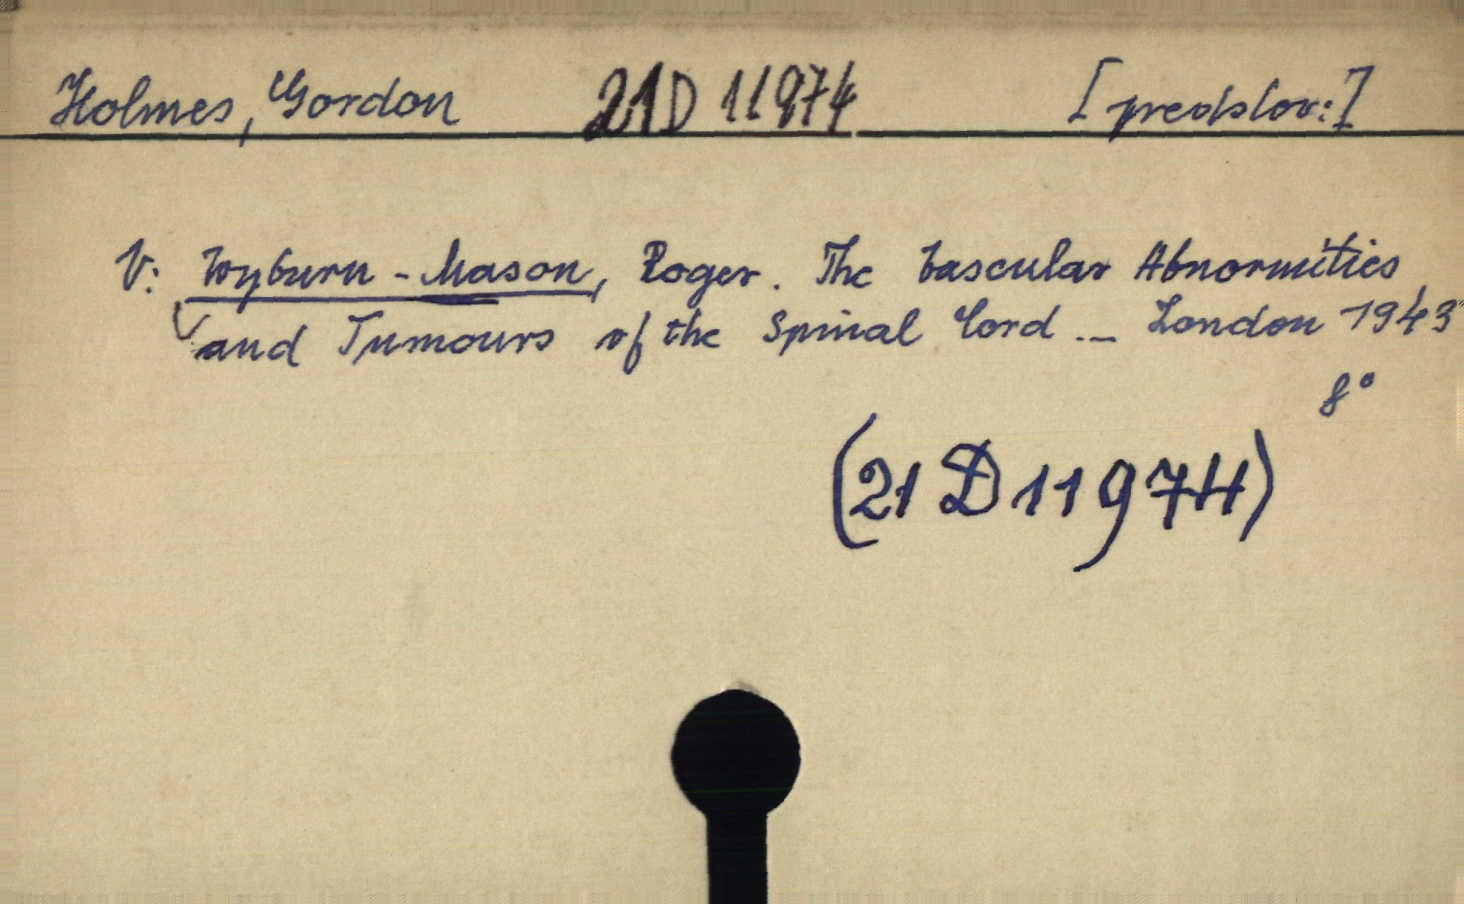 Holmes, Gordon 21D 11974 [predslov:]
V: Wyburn-Mason, Roger. The Vascular Abnormities
and Tumours of the Spinal Cord._ London 1943
8°
(21 D 11974)